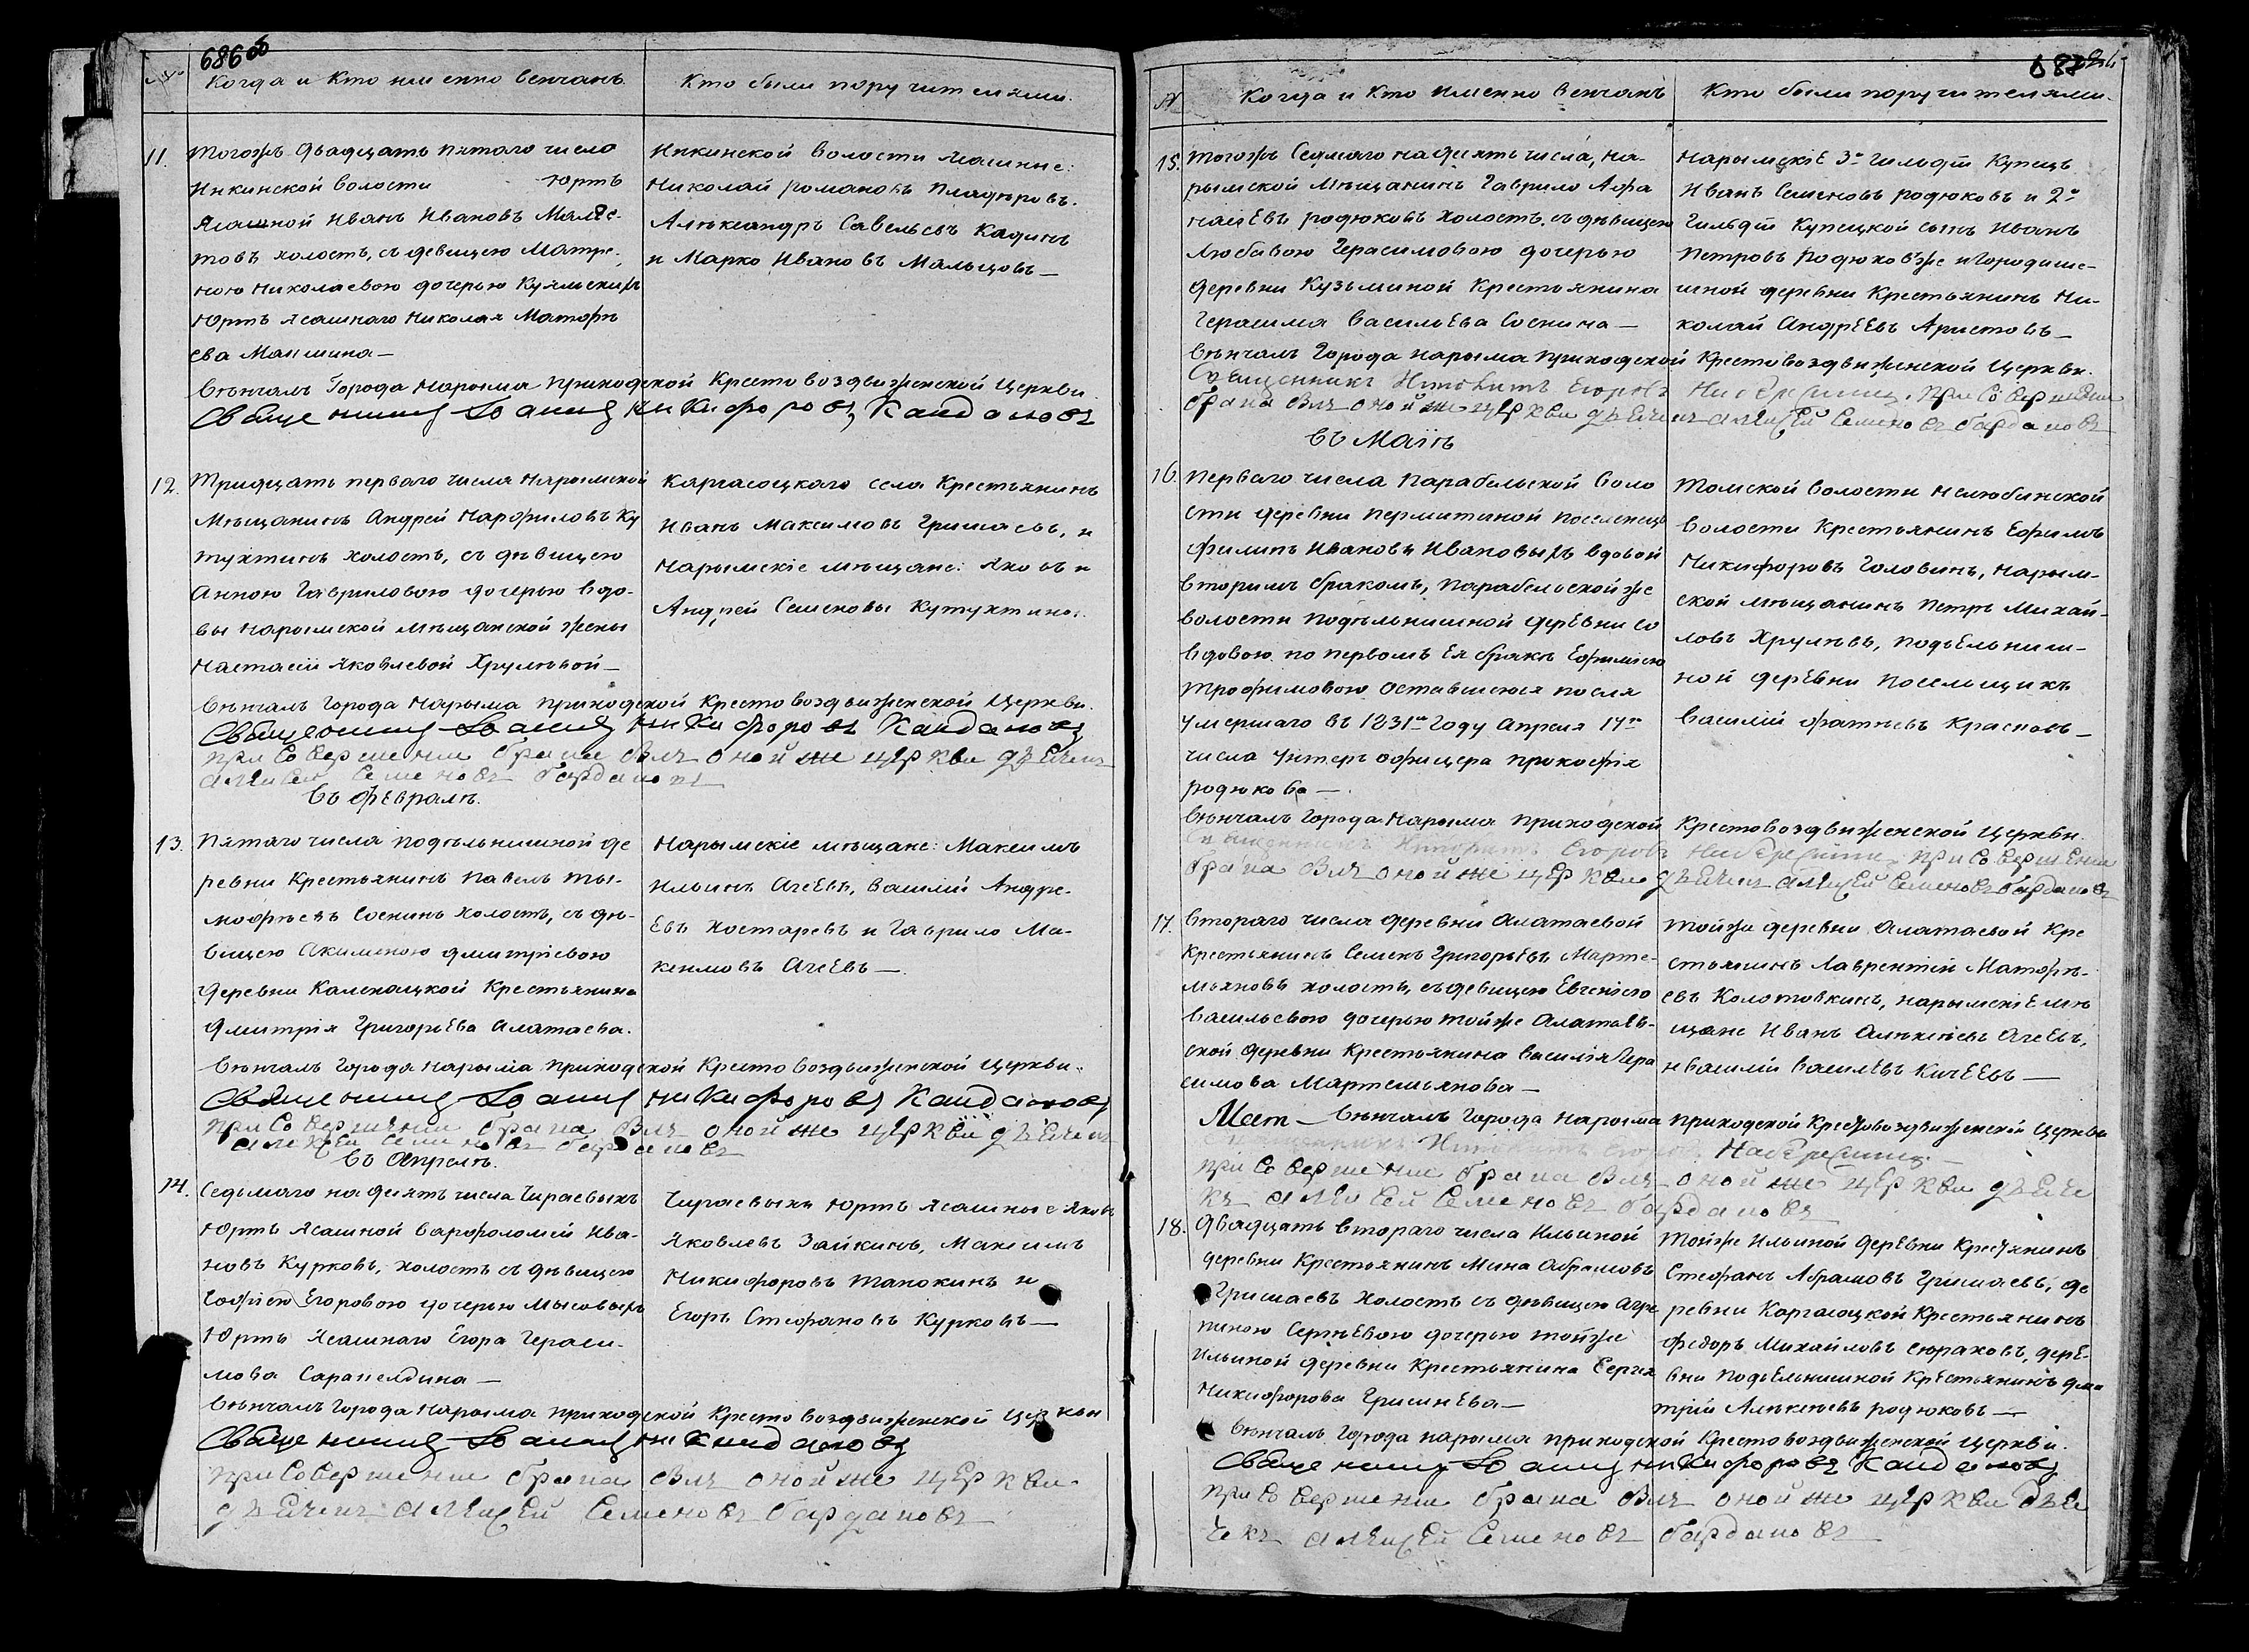 686 об
№
Когда и Кто именно венчанъ.
Кто были поручителями.
11.
тогожъ двадцать пятаго числа
Инкинской волости Юртъ
Ясашной Иванъ Ивановъ
товъ холостъ, съ девицею Матре-
ною Николаевою дочерью
Юртъ ясашнаго Николая Матфѣ
ева
Инкинской волости Ясашные:
Николай Романовъ
Александръ Савельевъ Кадинъ
и Марко Ивановъ Мальцовъ —
вѣнчалъ Города Нарыма приходской Кресто воздвиженской Церкви
Священникъ Іоаннъ Никифоровъ Кайдаловъ
12.
Тридцать перваго числа Нарымской
Мѣщанинъ Андрей Парфиловъ Ку
тухтинъ холостъ, съ дѣвицею
Анною Гавриловою дочерью вдо-
вы Нарымской мѣщанской жены
Настасіи Яковлевой Хрулевой —
Каргасоцкаго села Крестьянинъ
Иванъ Максимовъ Гришаевъ, и
Нарымскіе мѣщане: Яковъ и
Андрей Семеновы Кутухтины.
вѣнчалъ города Нарыма приходской Кресто воздвиженской Церкви.
Священникъ Іоаннъ Никифоровъ Кайдаловъ
при Совершении брака былъ оной же церкви дьячекъ
алексей Семеновъ бардаковъ
въ Февралѣ.
13.
Пятаго числа подъельнишной де
ревни Крестьянинъ Павелъ Ти-
мофѣевъ Соснинъ холостъ, съ дѣ-
вицею Акилиною Дмитріевою
деревни Каленацкой Крестьянина
Дмитрія Григорьева Алатаева.
Нарымскіе мѣщане: Максимъ
Ильинъ Агеевъ, Василій Андре-
евъ Костаревъ и Гаврило Ма-
ксимовъ Агеевъ —.
вѣнчалъ города Нарыма приходской Кресто воздвиженской Церкви.
Священникъ Іоаннъ Никифоровъ Кайдаловъ
при Совершении брака былъ оной же церкви дьячекъ
алексей Семеновъ бардаковъ
въ Апрелѣ.
14.
Седьмаго на десять числа Чираевыхъ
Юртъ ясашной Варфоломей Ива-
новъ Курковъ, холостъ съ дѣвицею
Софіею Егоровою дочерью Мысовыхъ
Юртъ Ясашнаго Егора Гераси-
мова
Чираевыхъ Юртъ ясашные Яковъ
Яковлевъ Зайкинъ, Максимъ
Никифоровъ Тапокинъ и
Егоръ Стефановъ Курковъ —
вѣнчалъ Города Нарыма приходской Кресто воздвиженской церкви
Священникъ Іоаннъ Кайдаловъ
при Совершении брака былъ оной же церкви
дьячекъ алексей Семеновъ бардаковъ
687
№
Когда и Кто именно венчанъ
Кто были поручителями.
15.
тогожъ Седмаго надесять числа, На-
рымской Мѣщанинъ Гаврило Афа
насьевъ родюковъ холостъ, съ дѣвицею
Любавою Герасимовою дочерью
деревни Кузьминой Крестьянина
Герасима Васильева Соснина —
Нарымскіе 3й Гильдіи Купецъ
Иванъ Семеновъ родюковъ и 2й
Гильдіи Купецкой сынъ Иванъ
Петровъ Родюковъ же и Городище-
шной деревни Крестьянинъ Ни-
колай Андреевъ Аристовъ —
вѣнчалъ Города Нарыма приходской Крестовоздвиженской Церкви.
Священникъ Егоровъ при Совершении
брака былъ оной же церкви дьячекъ алексей Семеновъ бардаковъ
въ Маіѣ
16.
перваго числа Парабельской воло
сти деревни Пермитиной поселенецъ
Филипъ Ивановъ Ивановыхъ вдовой
вторымъ бракомъ, Парабельской же
волости Подъельнишной деревни со
вдовою по первомъ ея бракѣ Ефиміею
Трофимовою оставшеюся после
умершаго въ 1831м Году Апреля 17го
числа Унтеръ офицера Прокофія
родюкова —.
Томской волости Нелюбинской
волости Крестьянинъ Ефимъ
Никифоровъ Головинъ, Нарым-
ской мѣщанинъ Петръ Михай-
ловъ Хрулевъ, подъельниш-
ной деревни посельщикъ
Василій Красновъ —
вѣнчалъ города Нарыма приходской Крестовоздвиженской Церкви.
Священникъ Егоровъ при Совершении
брака былъ оной же церкви дьячекъ алексей Семеновъ бардаковъ
17.
втораго числа деревни Алатаевой
Крестьянинъ Семенъ Григорьевъ Марте-
мьяновъ холостъ, съ девицею Евгеніею
Васильевою дочерью той же Алатаев-
ской деревни Крестьянина Василія Гера
симова Мартемьянова —
той же деревни Алатаевой Кре
стьянинъ Лаврентій Матфѣ-
евъ Колотовкинъ, Нарымскіе мѣ
щане Иванъ Алексѣевъ Агеевъ,
и Василій Васильевъ Кичеевъ —
вѣнчалъ Города Нарыма приходской Крестовоздвиженской Церкви
при Совершении брака былъ оной же церкви дьяче
къ алексей Семеновъ бардаковъ
18.
двадцать втораго числа Ильиной
деревни Крестьянинъ Мина Абрамовъ
Гришаевъ холостъ съ дѣвицею Агри
пиною Сергѣевою дочерью той же
Ильиной деревни Крестьянина Сергея
Никифорова Гришаева —
той же Ильиной деревни Крестьянинъ
Стефанъ Абрамовъ Гришаевъ, де
ревни Каргасоцкой Крестьянинъ
Федоръ Михайловъ Сюраковъ, дере-
вни Подъельнишной Крестьянинъ Дми
трій Алексеевъ родюковъ —
вѣнчалъ Города Нарыма приходской Кресто воздвиженской церкви.
Священникъ Іоаннъ Никифоровъ Кайдаловъ
при Совершении брака былъ оной же церкви дья
чекъ алексей Семеновъ бардаковъ